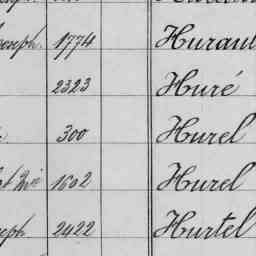 1774 Huraul
2323 Huré
300 Hurel
1602 Hurel
seph 2422 Hurtel